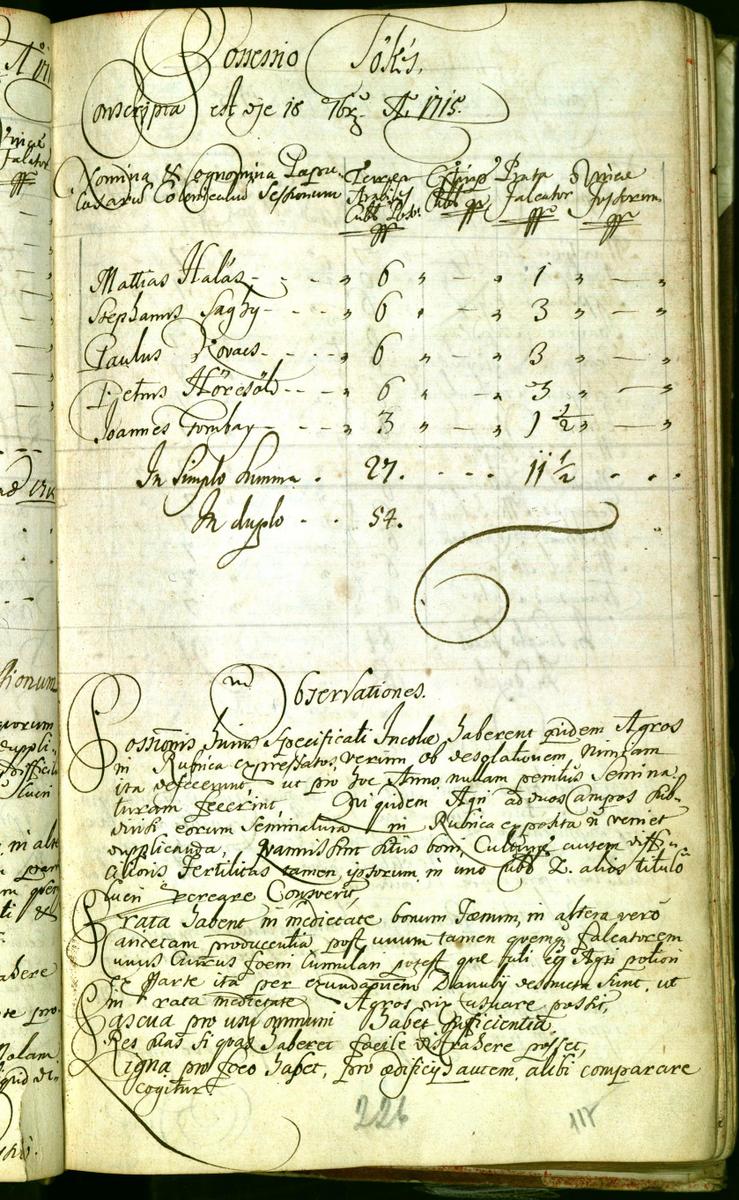 Possessio Tőkés,
Conscripta est die 18 7bris Ao 1715.
Nomina & Cognomina
Colonicalium Sessionum
Terrae
Arabiles
Cub. Pos.
Prata
Falcator
Vineae
Fossorum
Mattias Halás - - - „ 6 „ — „ 1 „ — „
Stephanus Saghy - - - „ 6 „ — „ 3 „ — „
Paulus Kovacs - - - „ 6 „ — „ 3 „ — „
Petrus - - - „ 6 „ — „ 3 „ — „
Joannes Tombay - - - „ 3 „ — „ 1 1/2 „ — „
In Simplo Summa . 27. - - - 11 1/2 . . .
In duplo - - . 54.
Observationes.
Possionis huius Specificati Incolae haberent quidem Agros
in Rubrica expressatos, verum ob desolationem, nimium
ita defecerunt, ut pro hoc Anno nullam penitus Semina
turam fecerint, Qui quidem Agri ad duos Campos sub-
divisi eorum Seminatura in Rubrica exposita veniet
dupplicanda, quamvis sint situs boni, Culturae autem diffi-
cilioris Fertilitas tamen ipsorum in uno Cub. 2. alios titulo
lucri recreare Consvevit,
Prata habent in medietate bonum Faenum, in altera vero
producentia post unum tamen quemque falcatorem
unus Currus foeni Cumulari potest que sub
Parte ita per exundationem Danubij sunt, ut
in rata medietate Agros vix usuare possint,
Pascua pro usu omnium habet Sufficientia,
Res suas si quas haberet facile distrahere posset,
Ligna pro foco habet, pro aedificijs autem, alibi comparare
cogitur
226
117